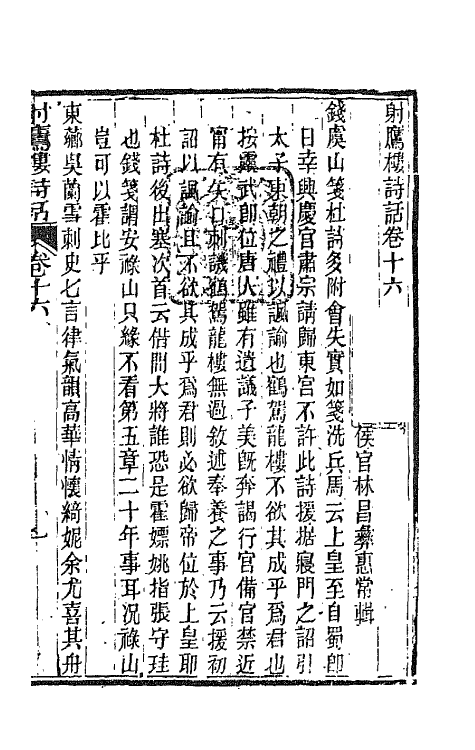 射鷹樓詩話卷十六
侯官林昌彝惠常輯
錢虞山箋杜詩多附會失實如箋洗兵馬云上皇至自蜀卽
日幸興慶宮肅宗請歸東宮不許此詩援據寢門之詔引
太子東朝之禮以諷諭也鶴駕龍樓不欲其成乎爲君也
按靈武卽位唐人雖有逍議子美旣奔謁行宮備官禁近
甯有矢口刺譏鶴駕龍樓無過敘述奉養之事乃云援初
詔以諷諭且不欲其成乎爲君則必欲歸帝位於上皇耶
杜詩後出塞次首云借問大將誰恐是霍嫖姚指張守珪
也錢箋謂安祿山只緣不看第五章二十年事耳况祿山
豈可以霍比乎
東薌吳蘭雪刺史七言律氣韻高華情懷綺妮余尤喜其舟
射鷹樓詩話 卷十六 一